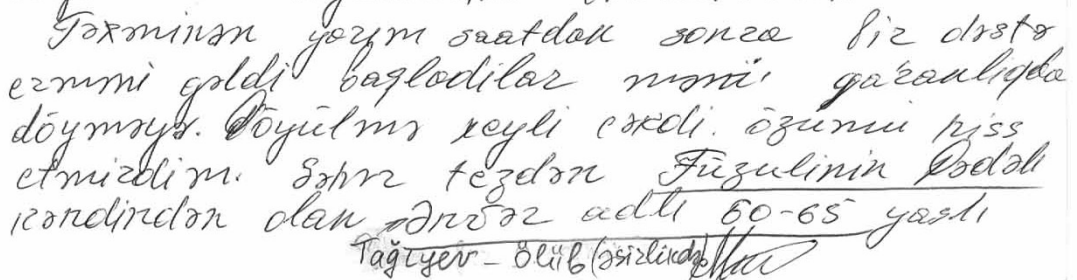 Təxminən yarım saatdan sonra bir dəstə
erməni gəldi başladılar məni qaranlıqda
döyməyə. Döyülmə xeyli çəkdi. özümü hiss
etmirdim. Səhər tezdən Füzulinin Dədəli
kəndindən olan Ənvər adlı 60-65 yaşlı
Tağıyev - ölüb (əsirlikdə)